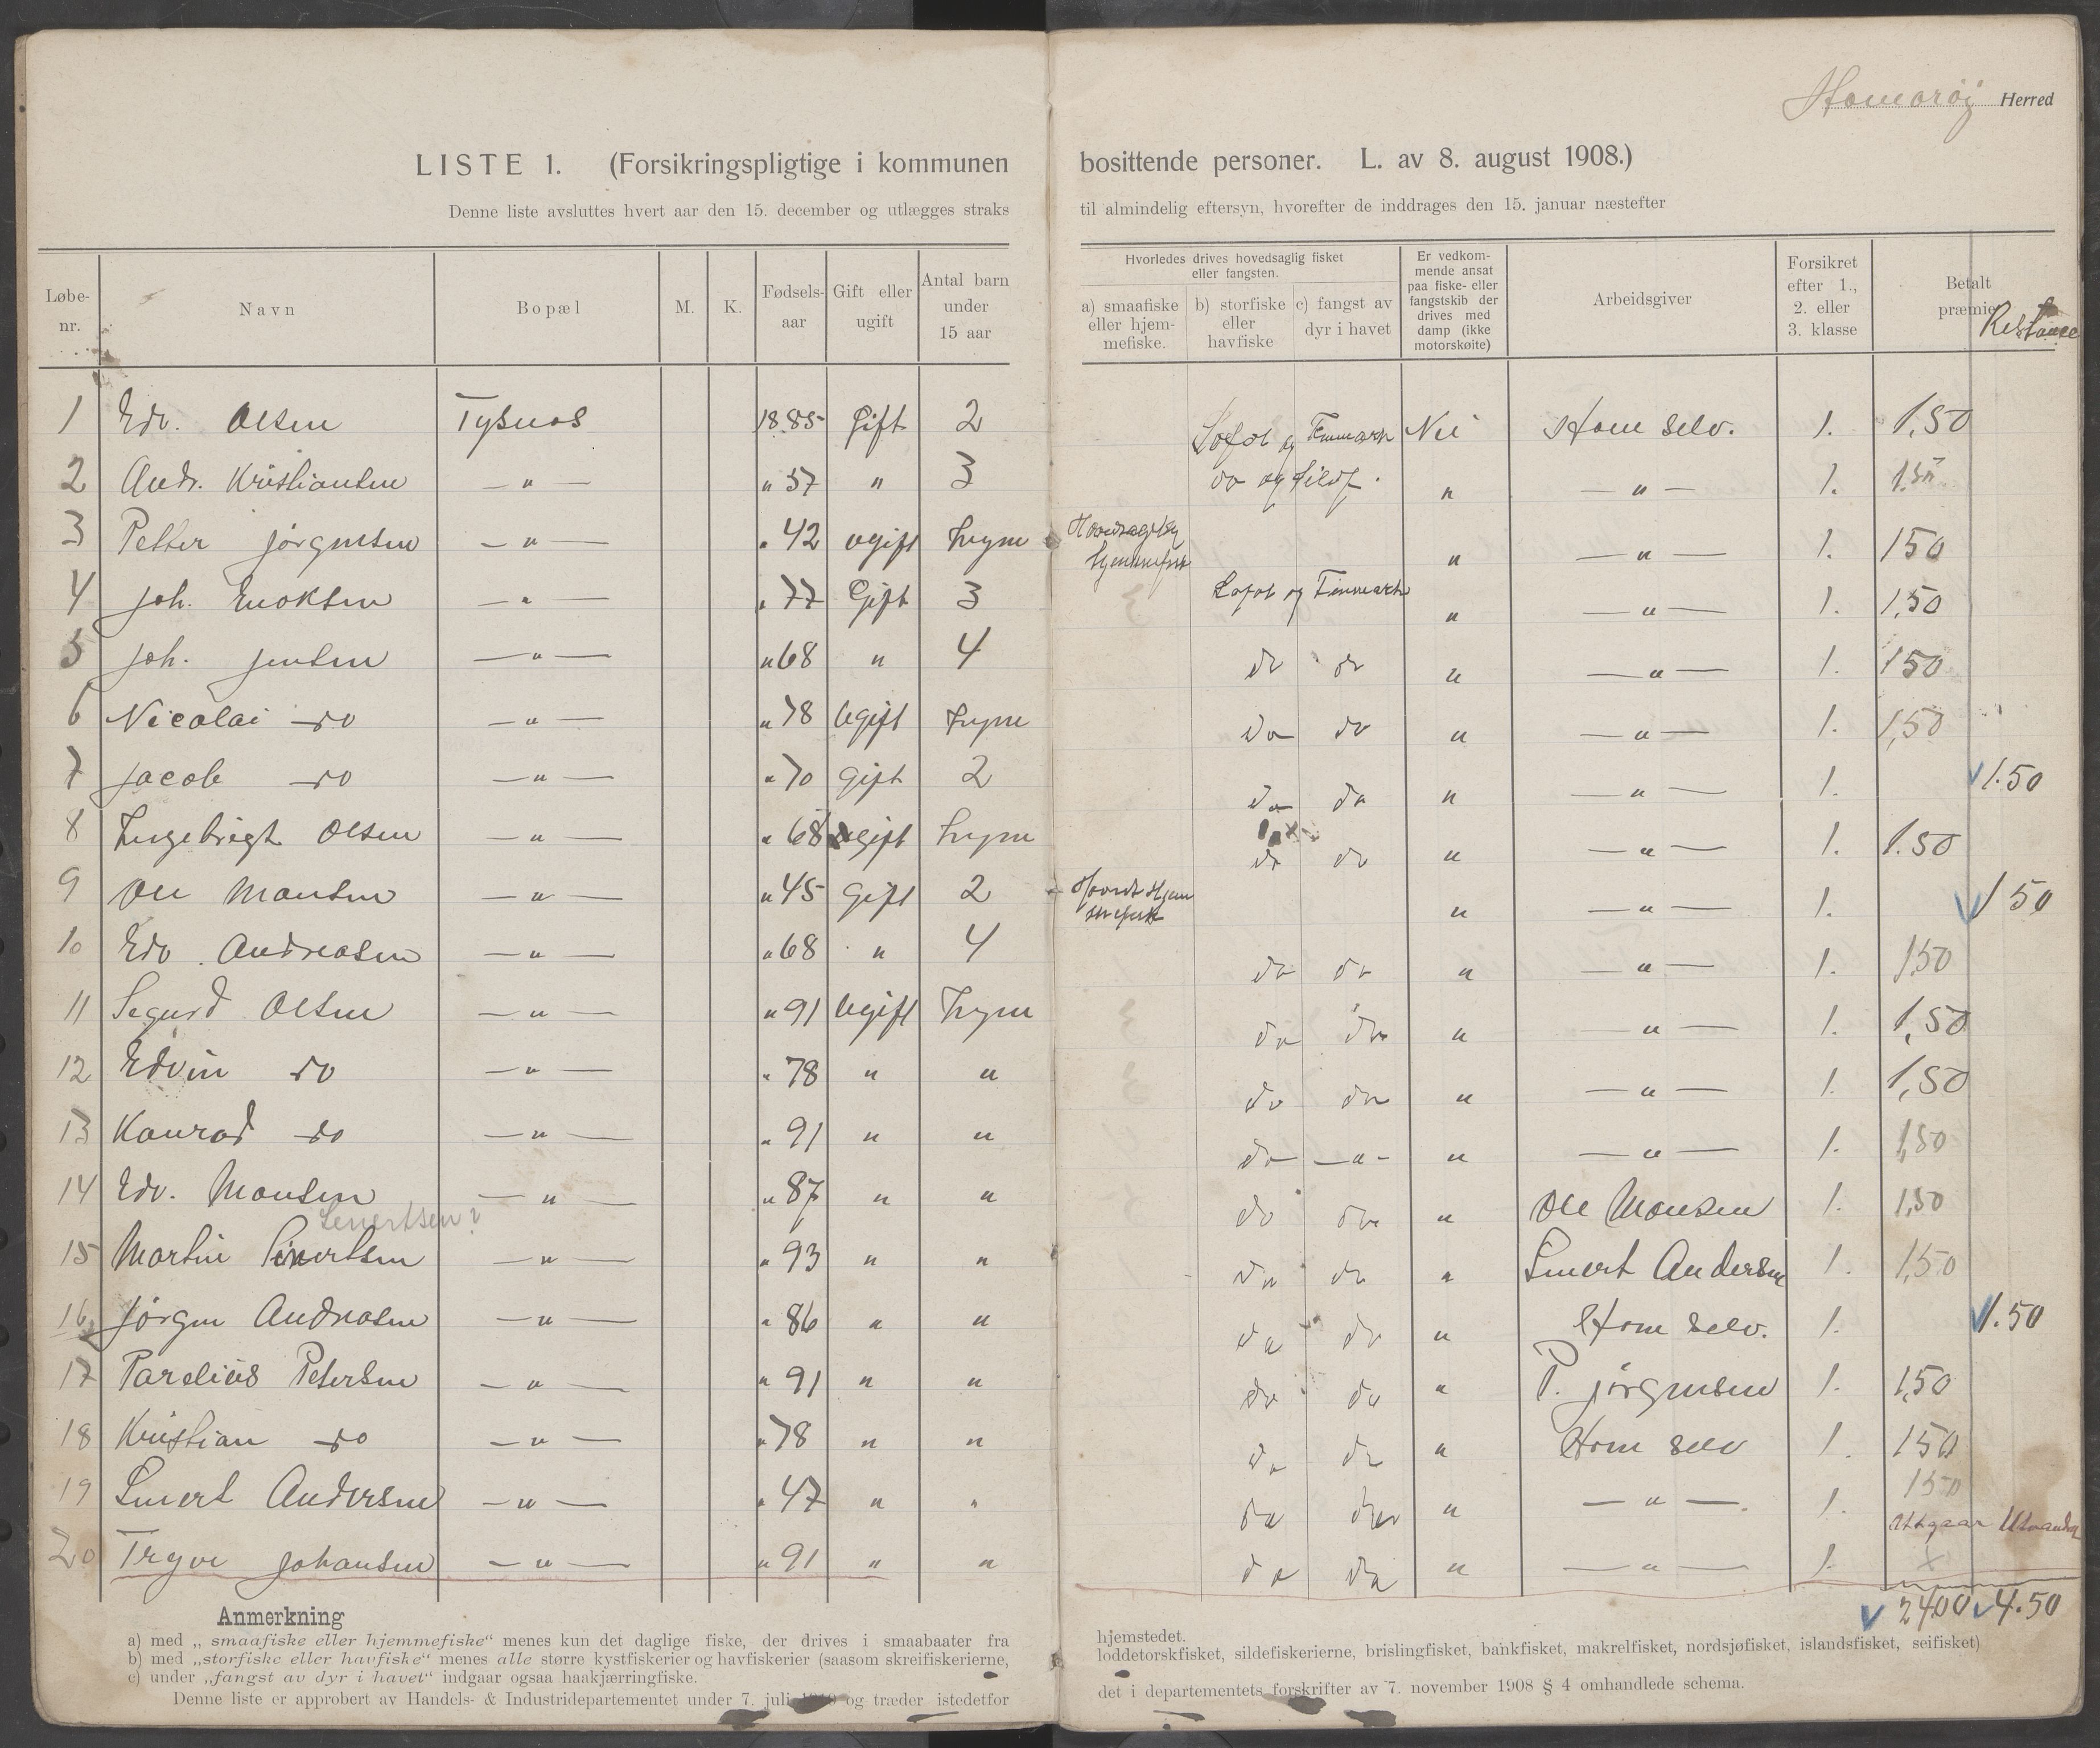 Hamarøj Herred
LISTE 1. (Forsikringspligtige i kommunen bosittende personer. L. av 8. august 1908.)
Denne liste avsluttes hvert aar den 15. december og utlægges straks til almindelig eftersyn, hvorefter de inddrages den 15. januar næstefter
Løbe-nr. Navn Bopæl M. K. Fødsels-aar Gift eller ugift Antal barn under 15 aar Hvorledes drives hovedsaglig fisket eller fangsten. a) smaafiske eller hjem-mefiske. b) storfiske eller havfiske c) fangst av dyr i havet Er vedkom-mende ansat paa fiske- eller fangstskib der drives med damp (ikke motorskøite) Arbeidsgiver Forsikret efter 1., 2. eller 3. klasse Betalt præmie Restance
1 Edv. Olsen Tysnes 1885 Gift 2 Lofot og Finmark Nei Ham selv. 1. 1,50
2 Andr. Kristiansen — " — " 57 " 3 do og Sildf. " — " — 1. 1.50
3 Petter Jörgensen — " — " 42 ugift Ingen Hovedsagelig hjemmefisk " — " — 1. 150
4 Joh. Enoksen — " — " 77 Gift 3 Lofot og Finmark " — " — 1. 1,50
5 Joh. Jensen — " — " 68 " 4 do do " — " — 1. 150
6 Nicolai do — " — " 78 Ugift Ingen do do " — " — 1. 1,50
7 Jacob do — " — " 70 Gift 2 do do " — " — 1. 1.50
8 Ingebrigt Olsen — " — " 68 ugift Ingen do do " — " — 1. 1.50
9 Ole Monsen — " — " 45 Gift 2 Hoveds Hjemmefisk " — " — 1. 1 50
10 Edv. Andreasen — " — " 68 " 4 do do " — " — 1. 1,50
11 Segurd Olsen — " — " 91 Ugift Ingen do do " — " — 1. 1,50
12 Edvin do — " — " 78 " " do do " — " — 1. 1,50
13 Konrad do — " — " 91 " " do — " — " — " — 1. 1,50
14 Edv. Monsen — " — " 87 " " do do " Ole Monsen 1. 1,50
Senertsen?
15 Martin Sinertsen — " — " 93 " " do do " Sinert Andersen 1. 1,50
16 Jörgen Andreasen — " — " 86 " " do do " Ham selv. 1. 1.50
17 Parelius Petersen — " — " 91 " " do do " P. Jörgensen 1. 1,50
18 Kristian do — " — " 78 " " do do " Ham selv 1. 150
19 Sinert Andersen — " — " 47 " " do do " — " — 1. 150
Utgaar Utvandr
20 Trygve Johansen — " — " 91 " " do do " — " — 1. x
2400 4.50
Anmerkning
a) med „smaafiske eller hjemmefiske“ menes kun det daglige fiske, der drives i smaabaater fra hjemstedet.
b) med „storfiske eller havfiske“ menes alle større kystfiskerier og havfiskerier (saasom skreifiskerierne, loddetorskfisket, sildefiskerierne, brislingfisket, bankfisket, makrelfisket, nordsjøfisket, islandsfisket, seifisket)
c) under „fangst av dyr i havet“ indgaar ogsaa haakjærringfiske.
Denne liste er approbert av Handels- & Industridepartementet under 7. juli og træder istedetfor det i departementets forskrifter av 7. november 1908 § 4 omhandlede schema.